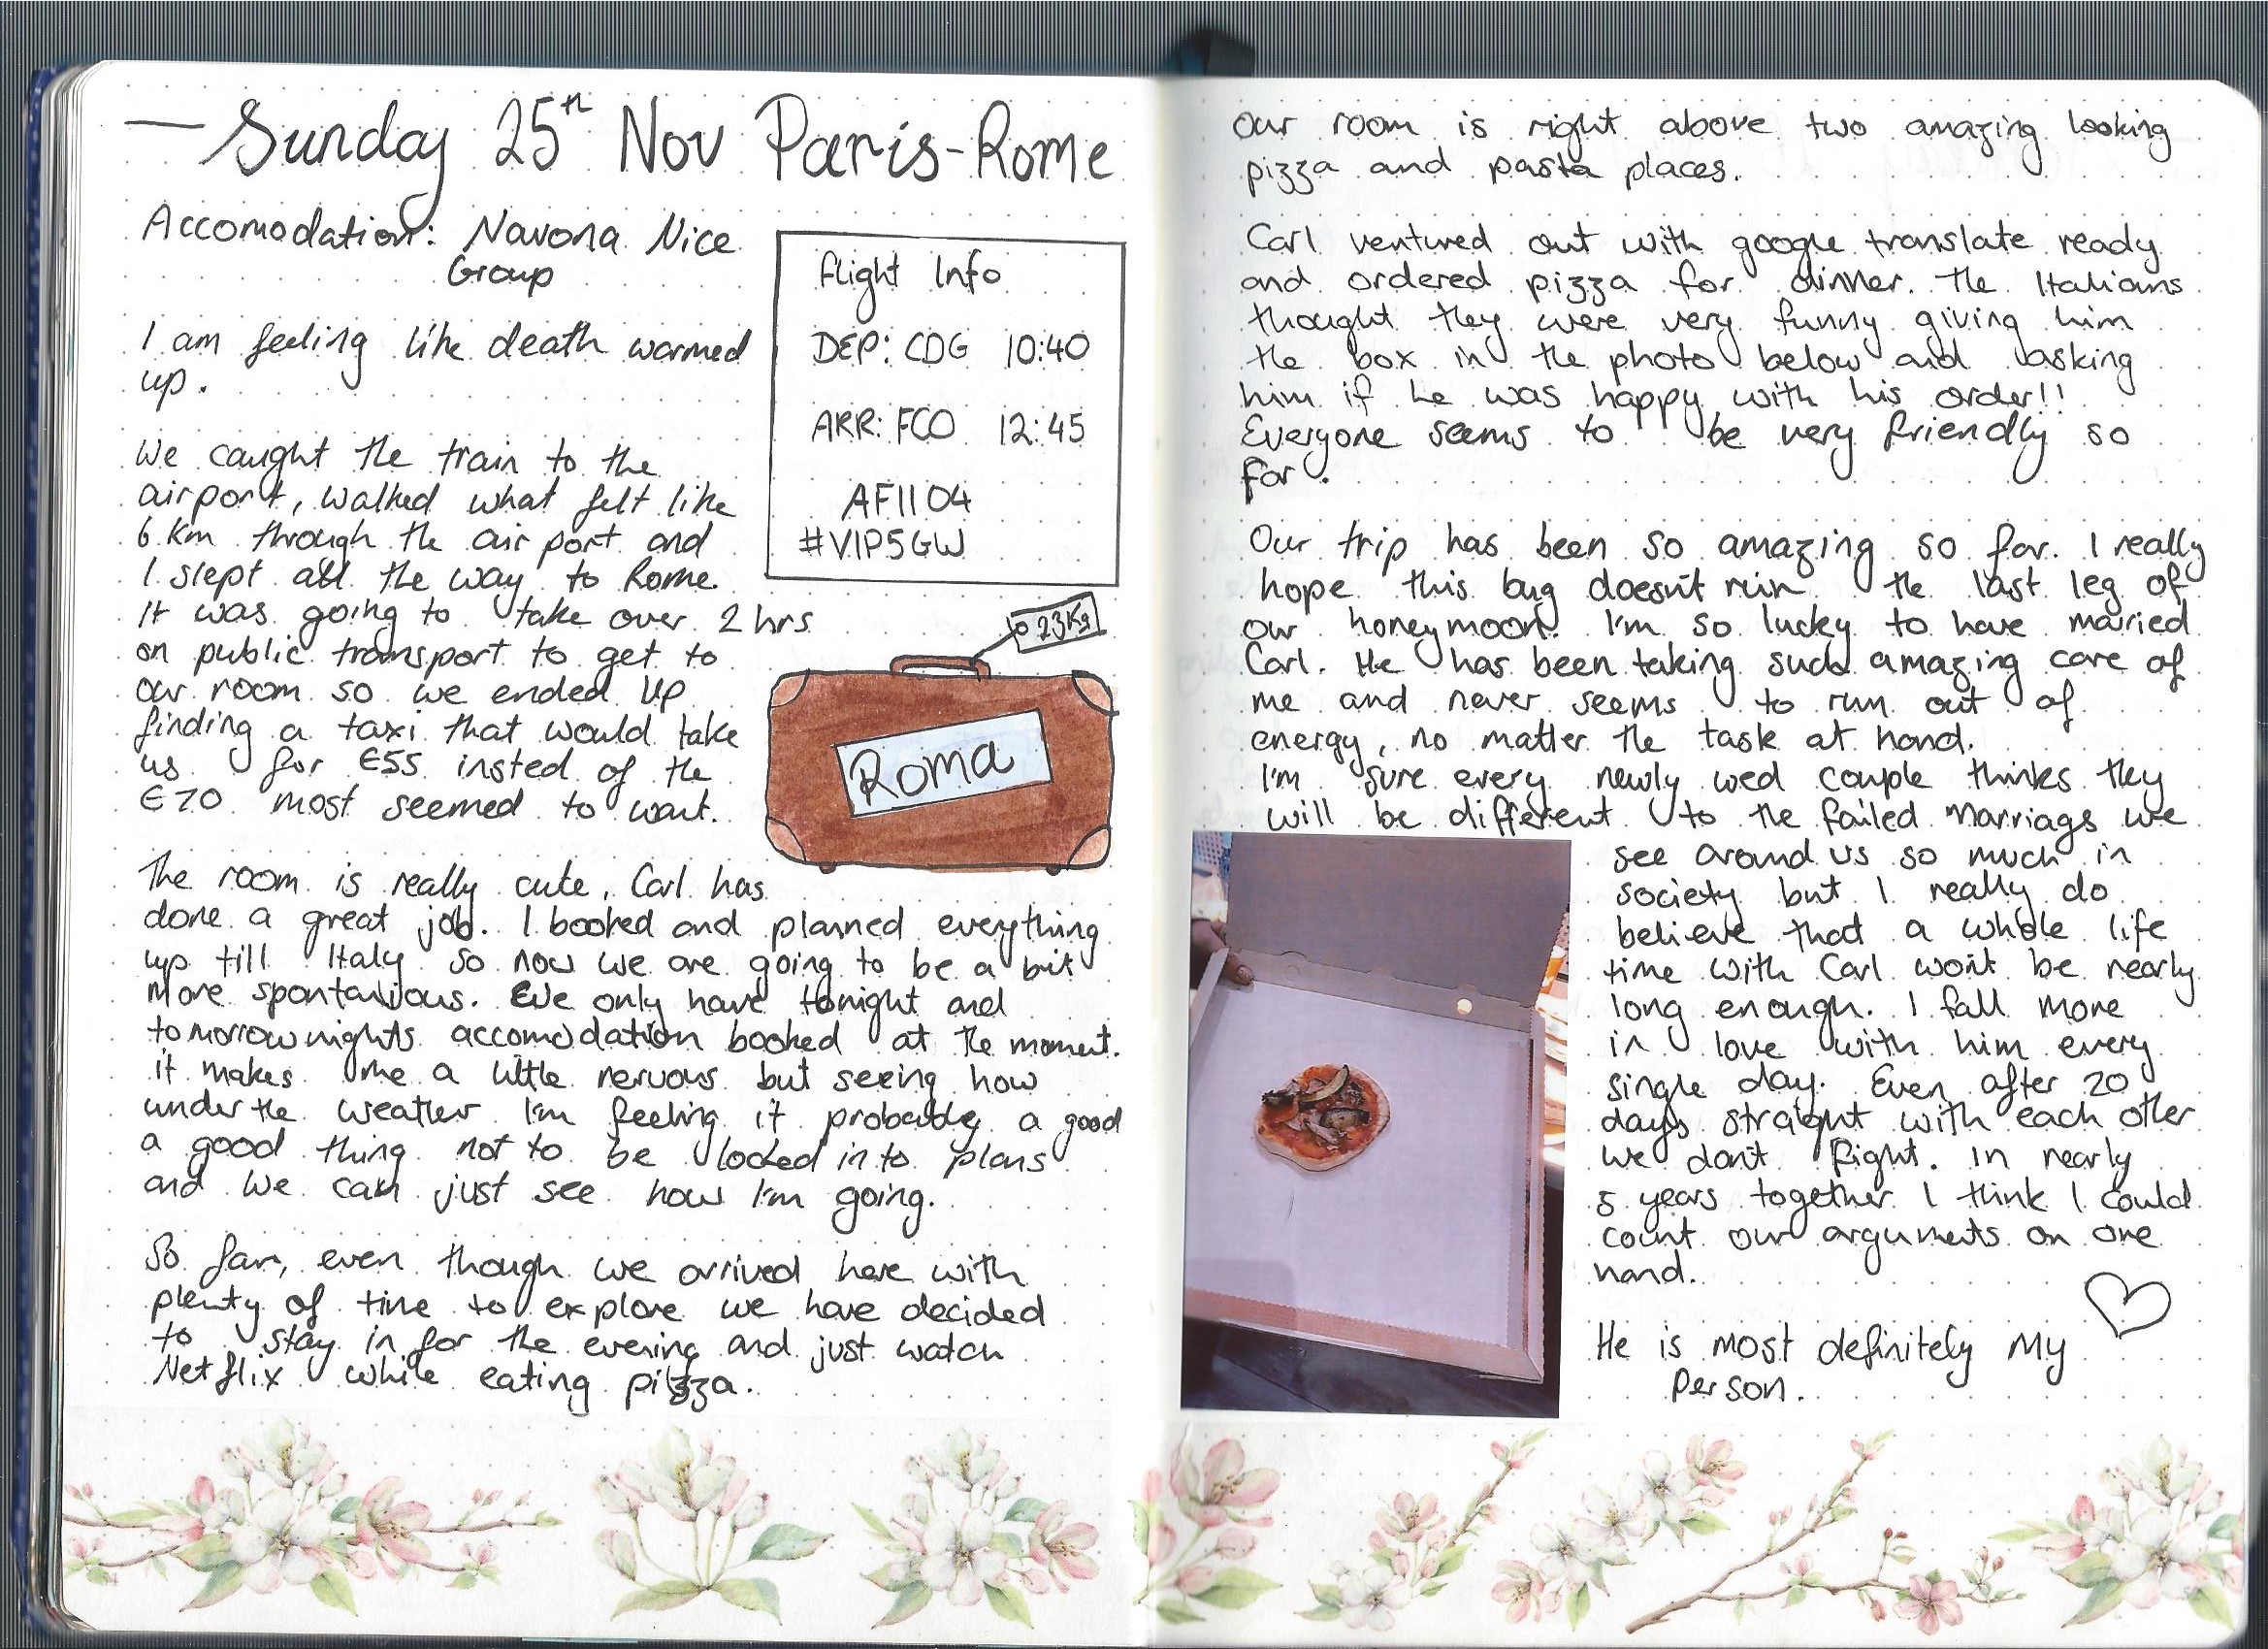 — Sunday 25th Nov Paris-Rome
Accomodation: Navona Nice
Group
Flight Info
DEP: CDG 10:40
ARR: FCO 12:45
AF1104
#VIP5GW
I am feeling like death warmed
up.
We caught the train to the
airport, walked what felt like
6 Km through the airport and
I slept all the way to Rome.
It was going to take over 2 hrs
on public transport to get to
our room so we ended up
finding a taxi that would take
us for €55 insted of the
€70 most seemed to want.
23Kg
Roma
The room is really cute, Carl has
done a great job. I booked and planned everything
up till Italy so now we are going to be a bit
more spontanious. We only have tonight and
tomorrow nights accomodation booked at the moment.
it makes me a little nervous but seeing how
under the weather I'm feeling it probably a good
a good thing not to be locked into plans
and we can just see how I'm going.
So far, even though we arrived here with
plenty of time to explore we have decided
to stay in for the evening and just watch
Netflix while eating pizza.
Our room is right above two amazing looking
pizza and pasta places.
Carl ventured out with google translate ready
and ordered pizza for dinner. The Italians
thought they were very funny giving him
the box in the photo below and asking
him if he was happy with his order!!
Everyone seems to be very friendly so
far.
Our trip has been so amazing so far. I really
hope this bug doesn't ruin the last leg of
our honeymoon. I'm so lucky to have married
Carl. He has been taking such amazing care of
me and never seems to run out of
energy, no matter the task at hand.
I'm sure every newly wed couple thinks they
will be different to the failed marriags we
see around us so much in
society but I really do
believe that a whole life
time with Carl won't be nearly
long enough. I fall more
in love with him every
single day. Even after 20
days straight with each other
we don't fight. In nearly
5 years together I think I could
count our arguments on one
hand.
He is most definitely My
Person.